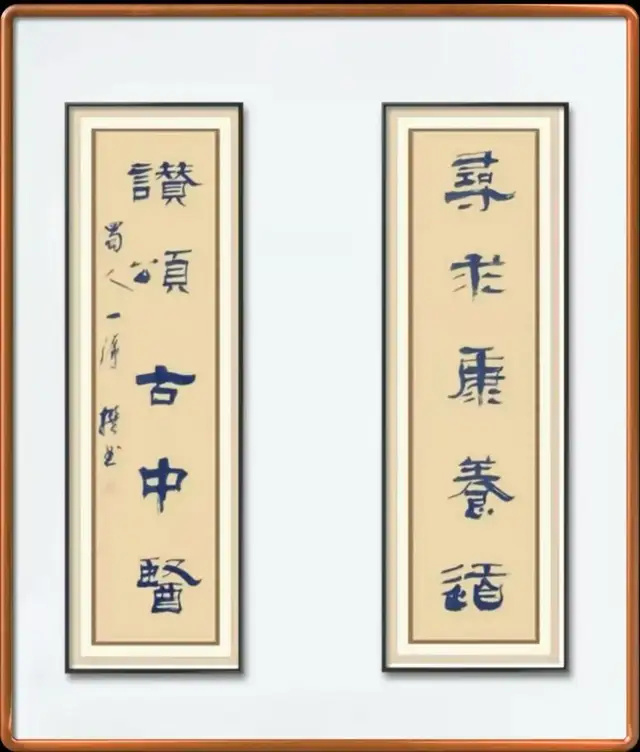 尋求康養道
讚頌古中醫
蜀人一
撰書